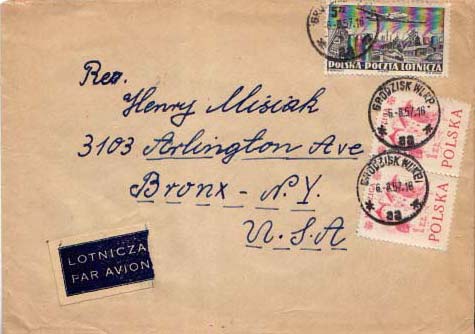 5ZŁ
POLSKA-POCZTA LOTNICZA
Rev.
Henry Misiak
3103 Arlington Ave
Bronx - N.Y.
U.S.A
GRODZISK WLKP.
-6.-8.57.-16
* aa *
POLSKA
GRODZISK WLKP.
-6.-8.57.-16
* aa *
POLSKA
LOTNICZA
PAR AVION